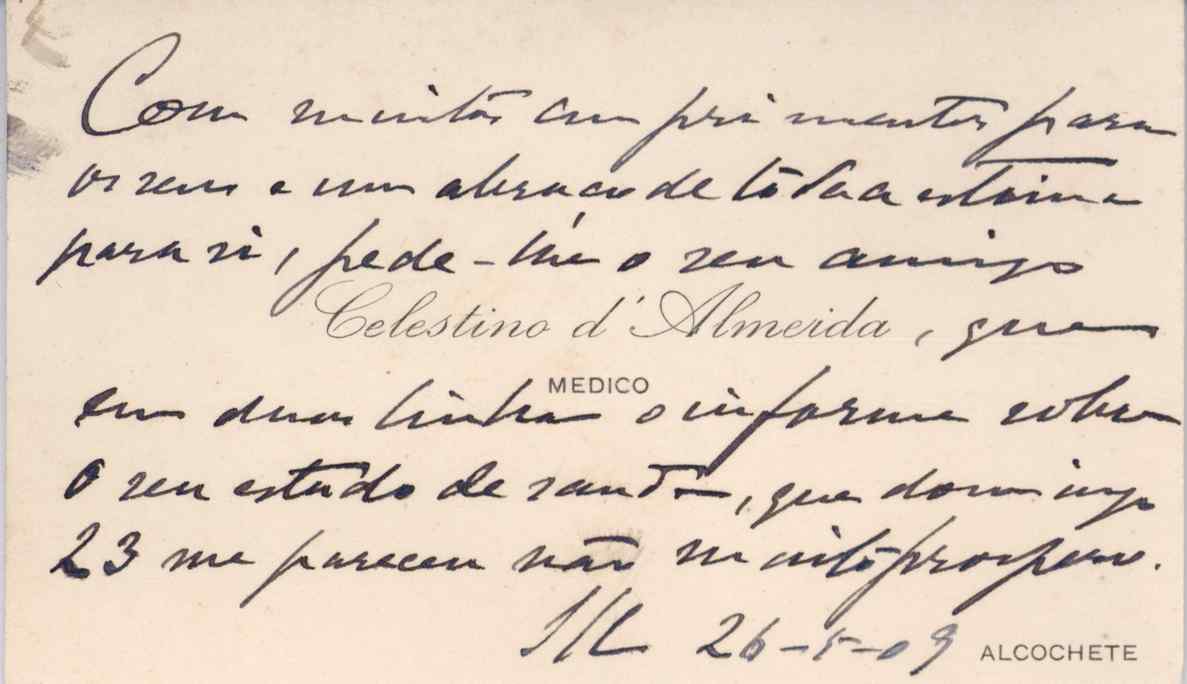 Com muitos cumprimentos para
os seus e um abraço de toda a estima
para si, pede-lhe o seu amigo
Celestino d'Almeida, que
MEDICO
em duas linhas o informe sobre
o seu estado de saude, que domingo
23 me pareceu não muito prospero.
26-5-09
ALCOCHETE